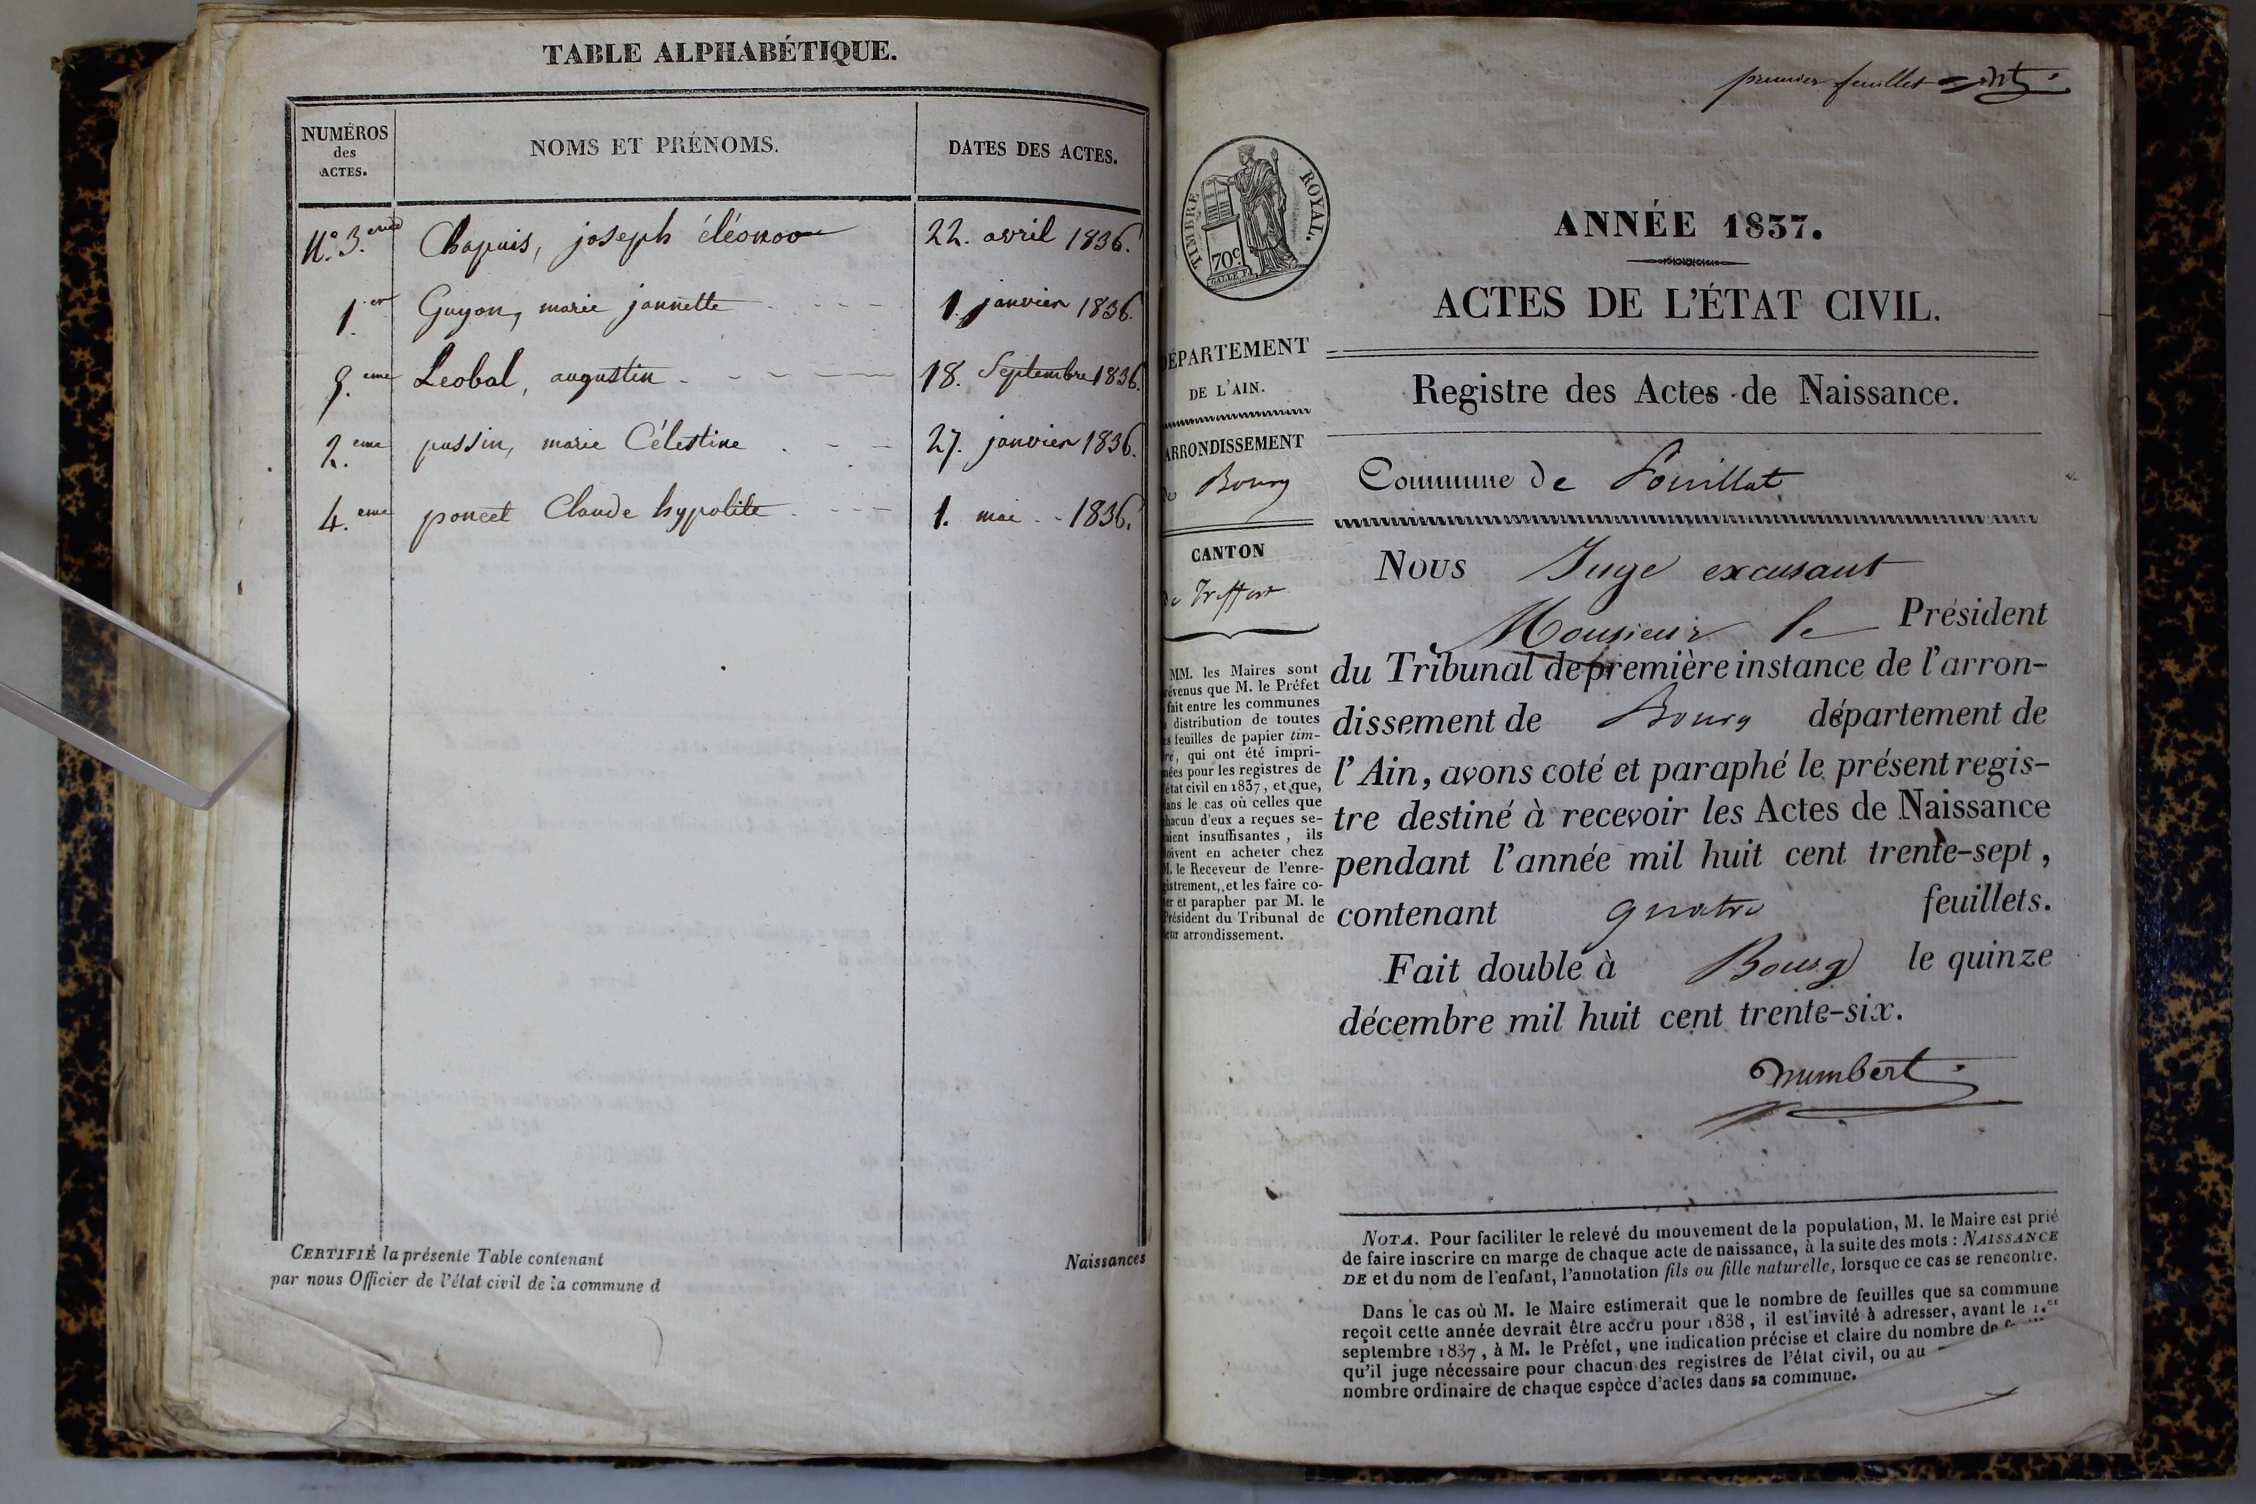 TABLE ALPHABÉTIQUE.
NUMÉROS
des
ACTES.
NOMS ET PRÉNOMS.
DATES DES ACTES.
N.º 3.eme Chapuis, joseph éléonore 22. avril 1836.
1.er Guyon, marie jannette 1. janvier 1836.
5.eme Leobal, augustin 18. Septembre 1836.
2.eme pussin, marie Célestine 27. janvier 1836.
4.eme poncet Claude hypolite 1. mai 1836.
CERTIFIÉ la présente Table contenant
par nous Officier de l'état civil de la commune d
Naissances
premier feuillet
TIMBRE ROYAL.
70c.
DÉPARTEMENT
DE L'AIN.
ARRONDISSEMENT
de Bourg
CANTON
de Treffort
MM. les Maires sont
prévenus que M. le Préfet
fait entre les communes
la distribution de toutes
les feuilles de papier tim-
bré, qui ont été impri-
mées pour les registres de
l'état civil en 1837, et que,
dans le cas où celles que
chacun d'eux a reçues se-
raient insuffisantes, ils
doivent en acheter chez
M. le Receveur de l'enre-
gistrement, et les faire co-
ter et parapher par M. le
Président du Tribunal de
leur arrondissement.
ANNÉE 1837.
ACTES DE L'ÉTAT CIVIL.
Registre des Actes de Naissance.
Commune de Pouillat
Nous Juge excusant
Monsieur le Président
du Tribunal de première instance de l'arron-
dissement de Bourg département de
l'Ain, avons coté et paraphé le présent regis-
tre destiné à recevoir les Actes de Naissance
pendant l'année mil huit cent trente-sept,
contenant quatre feuillets.
Fait double à Bourg le quinze
décembre mil huit cent trente-six.
NOTA. Pour faciliter le relevé du mouvement de la population, M. le Maire est prié
de faire inscrire en marge de chaque acte de naissance, à la suite des mots : NAISSANCE
DE et du nom de l'enfant, l'annotation fils ou fille naturelle, lorsque ce cas se rencontre.
Dans le cas où M. le Maire estimerait que le nombre de feuilles que sa commune
reçoit cette année devrait être accru pour 1838, il est invité à adresser, avant le 1.er
septembre 1837, à M. le Préfet, une indication précise et claire du nombre de
qu'il juge nécessaire pour chacun des registres de l'état civil, ou au
nombre ordinaire de chaque espèce d'actes dans sa commune.